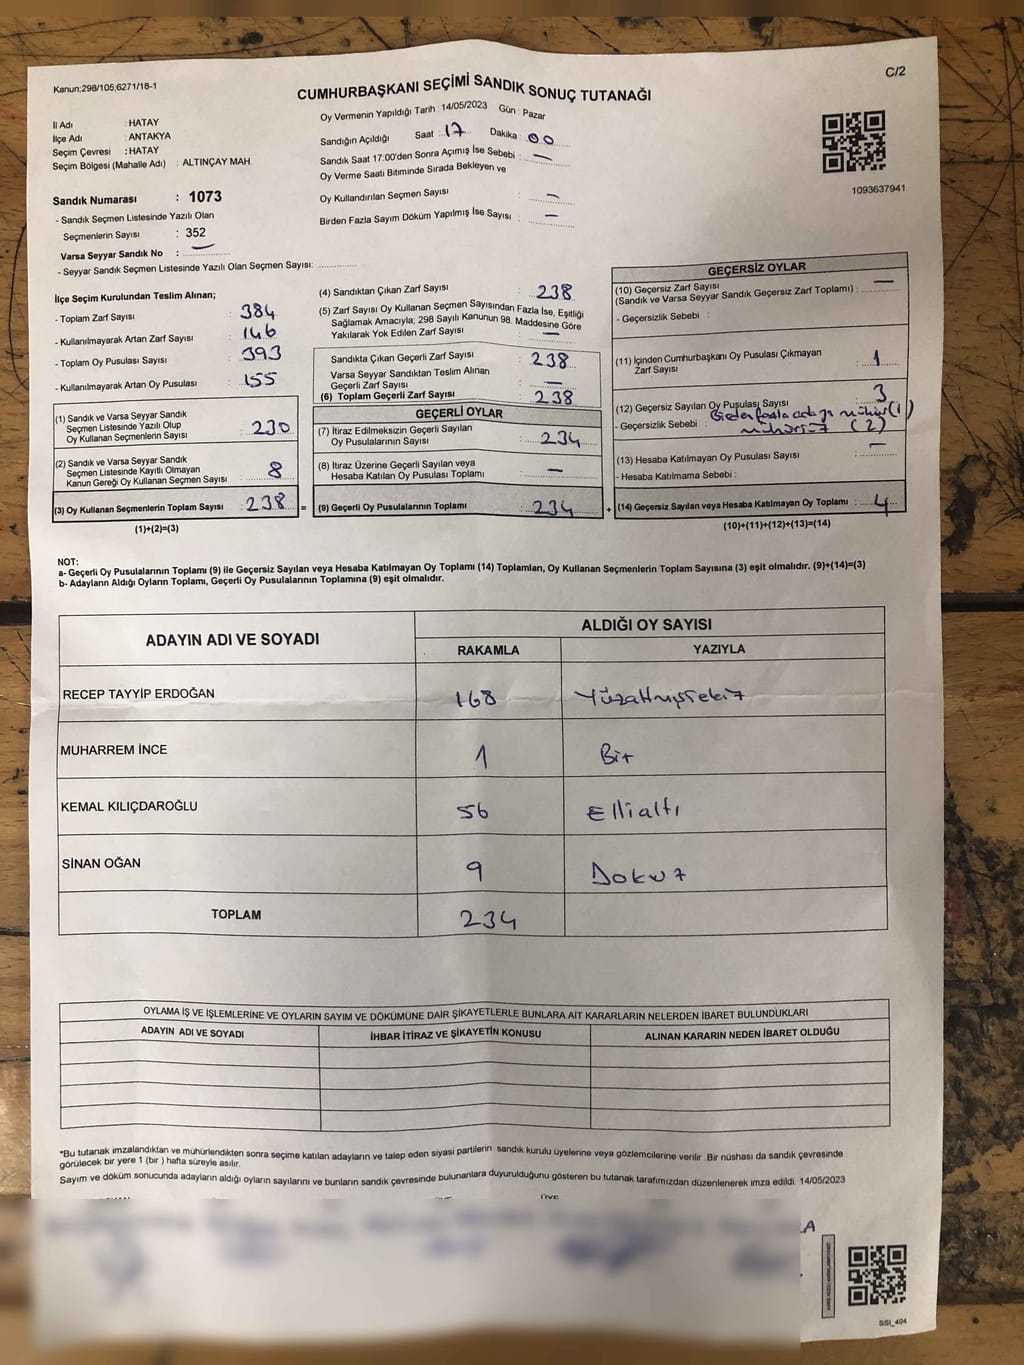 Kanun;298/105;6271/18-1
C/2
CUMHURBAŞKANI SEÇİMİ SANDIK SONUÇ TUTANAĞI
İl Adı : HATAY
İlçe Adı : ANTAKYA
Seçim Çevresi : HATAY
Seçim Bölgesi (Mahalle Adı) : ALTINÇAY MAH.
Sandık Numarası : 1073
- Sandık Seçmen Listesinde Yazılı Olan
Seçmenlerin Sayısı : 352
Varsa Seyyar Sandık No : —
- Seyyar Sandık Seçmen Listesinde Yazılı Olan Seçmen Sayısı:
Oy Vermenin Yapıldığı Tarih : 14/05/2023 Gün : Pazar
Sandığın Açıldığı Saat : 17 Dakika : 00
Sandık Saat 17:00'den Sonra Açımış İse Sebebi : —
Oy Verme Saati Bitiminde Sırada Bekleyen ve
Oy Kullandırılan Seçmen Sayısı : —
Birden Fazla Sayım Döküm Yapılmış İse Sayısı : —
1093637941
İlçe Seçim Kurulundan Teslim Alınan;
- Toplam Zarf Sayısı : 384
- Kullanılmayarak Artan Zarf Sayısı : 146
- Toplam Oy Pusulası Sayısı : 393
- Kullanılmayarak Artan Oy Pusulası : 155
(1) Sandık ve Varsa Seyyar Sandık
Seçmen Listesinde Yazılı Olup
Oy Kullanan Seçmenlerin Sayısı : 230
(2) Sandık ve Varsa Seyyar Sandık
Seçmen Listesinde Kayıtlı Olmayan
Kanun Gereği Oy Kullanan Seçmen Sayısı : 8
(3) Oy Kullanan Seçmenlerin Toplam Sayısı : 238 =
(1)+(2)=(3)
(4) Sandıktan Çıkan Zarf Sayısı : 238
(5) Zarf Sayısı Oy Kullanan Seçmen Sayısından Fazla İse, Eşitliği
Sağlamak Amacıyla; 298 Sayılı Kanunun 98. Maddesine Göre
Yakılarak Yok Edilen Zarf Sayısı : —
Sandıkta Çıkan Geçerli Zarf Sayısı : 238
Varsa Seyyar Sandıktan Teslim Alınan
Geçerli Zarf Sayısı : —
(6) Toplam Geçerli Zarf Sayısı : 238
GEÇERLİ OYLAR
(7) İtiraz Edilmeksizin Geçerli Sayılan
Oy Pusulalarının Sayısı : 234
(8) İtiraz Üzerine Geçerli Sayılan veya
Hesaba Katılan Oy Pusulası Toplamı : —
(9) Geçerli Oy Pusulalarının Toplamı : 234 +
GEÇERSİZ OYLAR
(10) Geçersiz Zarf Sayısı
(Sandık ve Varsa Seyyar Sandık Geçersiz Zarf Toplamı) : —
- Geçersizlik Sebebi :
(11) İçinden Cumhurbaşkanı Oy Pusulası Çıkmayan
Zarf Sayısı : 1
(12) Geçersiz Sayılan Oy Pusulası Sayısı : 3
- Geçersizlik Sebebi : Birden fazla adayı mühür (1)
mühürsüz (2)
(13) Hesaba Katılmayan Oy Pusulası Sayısı : —
- Hesaba Katılmama Sebebi :
(14) Geçersiz Sayılan veya Hesaba Katılmayan Oy Toplamı : 4
(10)+(11)+(12)+(13)=(14)
NOT:
a- Geçerli Oy Pusulalarının Toplamı (9) ile Geçersiz Sayılan veya Hesaba Katılmayan Oy Toplamı (14) Toplamları, Oy Kullanan Seçmenlerin Toplam Sayısına (3) eşit olmalıdır. (9)+(14)=(3)
b- Adayların Aldığı Oyların Toplamı, Geçerli Oy Pusulalarının Toplamına (9) eşit olmalıdır.
ADAYIN ADI VE SOYADI
ALDIĞI OY SAYISI
RAKAMLA YAZIYLA
RECEP TAYYİP ERDOĞAN 168 Yüzaltmışsekiz
MUHARREM İNCE 1 Bir
KEMAL KILIÇDAROĞLU 56 Ellialtı
SİNAN OĞAN 9 Dokuz
TOPLAM 234
OYLAMA İŞ VE İŞLEMLERİNE VE OYLARIN SAYIM VE DÖKÜMÜNE DAİR ŞİKAYETLERLE BUNLARA AİT KARARLARIN NELERDEN İBARET BULUNDUKLARI
ADAYIN ADI VE SOYADI İHBAR İTİRAZ VE ŞİKAYETİN KONUSU ALINAN KARARIN NEDEN İBARET OLDUĞU
*Bu tutanak imzalandıktan ve mühürlendikten sonra seçime katılan adayların ve talep eden siyasi partilerin sandık kurulu üyelerine veya gözlemcilerine verilir .Bir nüshası da sandık çevresinde
görülecek bir yere 1 (bir ) hafta süreyle asılır.
Sayım ve döküm sonucunda adayların aldığı oyların sayılarını ve bunların sandık çevresinde bulunanlara duyurulduğunu gösteren bu tutanak tarafımızdan düzenlenerek imza edildi. 14/05/2023
SSI_404